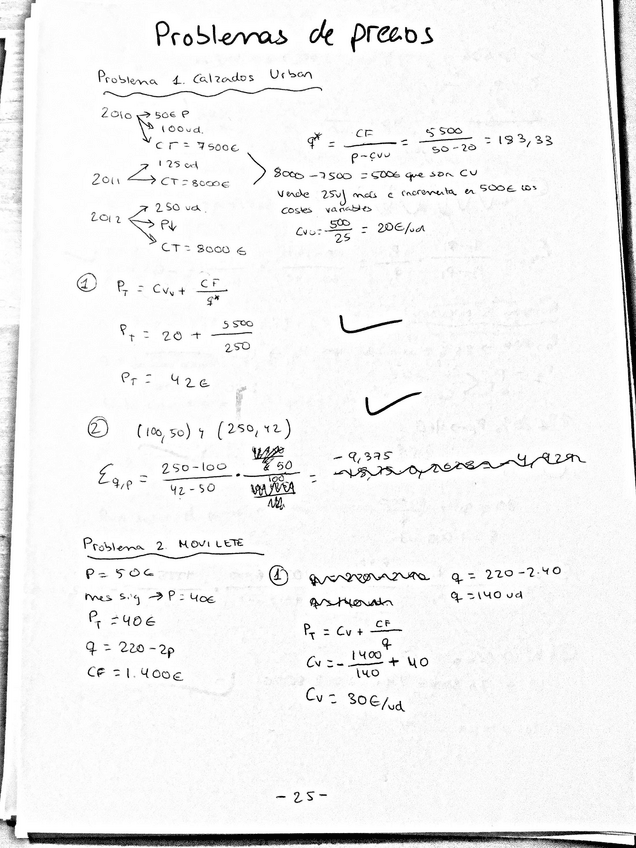 Problemas de precios
Problema 1. Calzados Urban
2010 → 50€ P
→ 100ud.
→ CT = 7500€
2011 → 125 ud
→ CT = 8000€
2012 → 250 ud.
→ P↓
→ CT = 8000 €
q* = CF / P-CVu = 5500 / 50-20 = 183,33
8000 - 7500 = 500€ que son CV
vende 25uf más e incrementa en 500€ los
costes variables
CVu = 500 / 25 = 20€/ud
① PT = CVu + CF / q*
PT = 20 + 5500 / 250
PT = 42€
② (100,50) y (250,42)
Eq,p = 250-100 / 42-50 · 50 / 100 = -9,375
Problema 2. MOVILETE
P = 50€
mes sig → P = 40€
PT = 40€
q = 220 - 2p
CF = 1.400€
① q = 220 - 2·40
q = 140 ud
PT = CV + CF / q
CV = - 1400 / 140 + 40
CV = 30€/ud
- 25 -